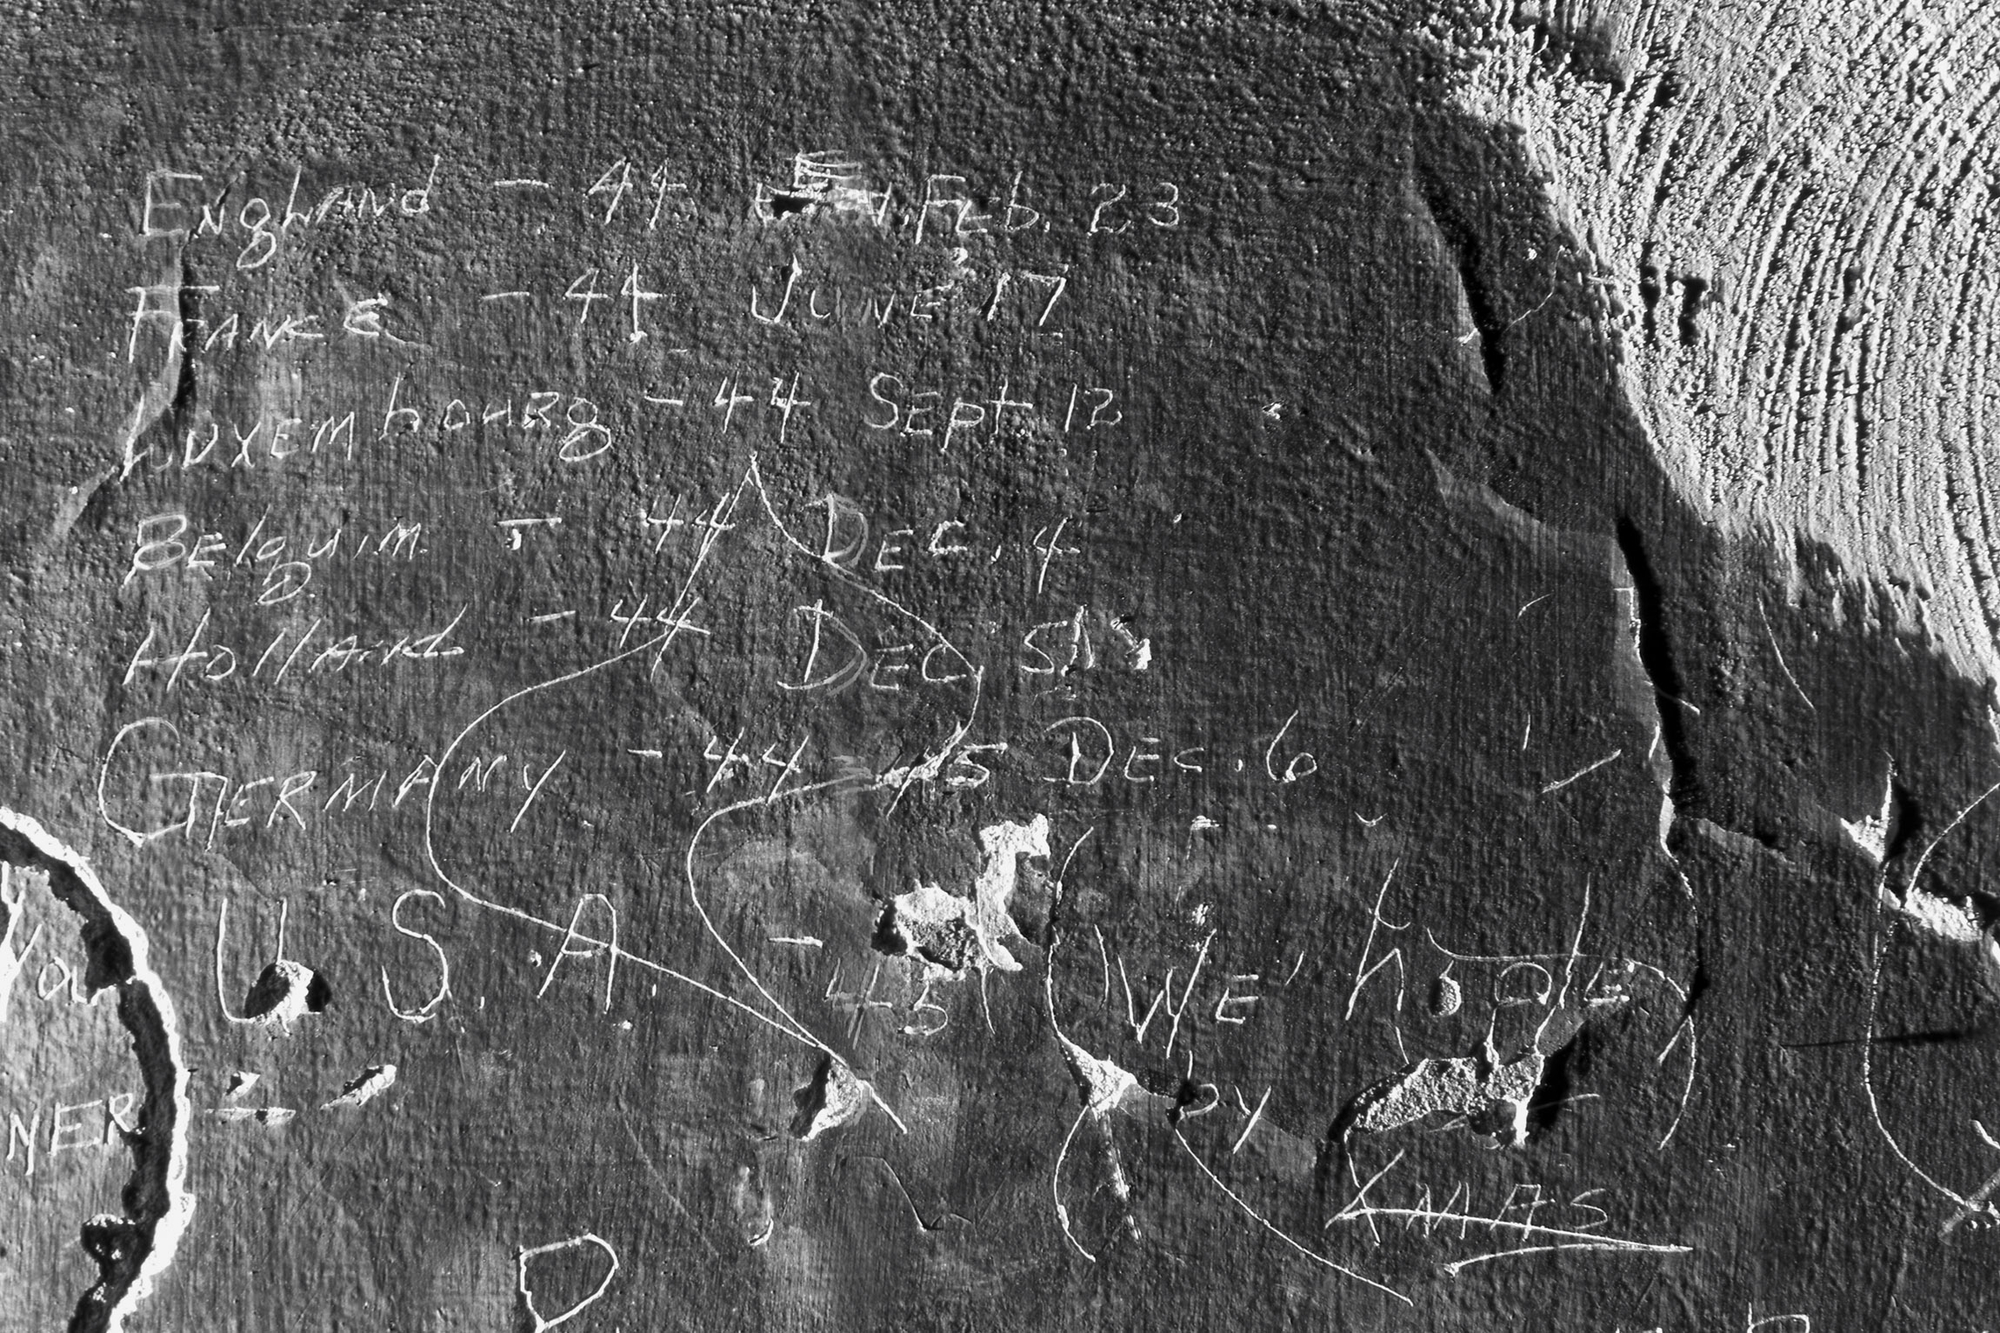 England - 44 Feb. 23
France - 44 June 17
Luxembourg - 44 Sept 13
Belguim - 44 Dec. 4
Holland - 44 Dec 5
Germany - 44 - 45 Dec. 6
You U.S.A. - 45 (We' hope)
NER - by Xmas
D